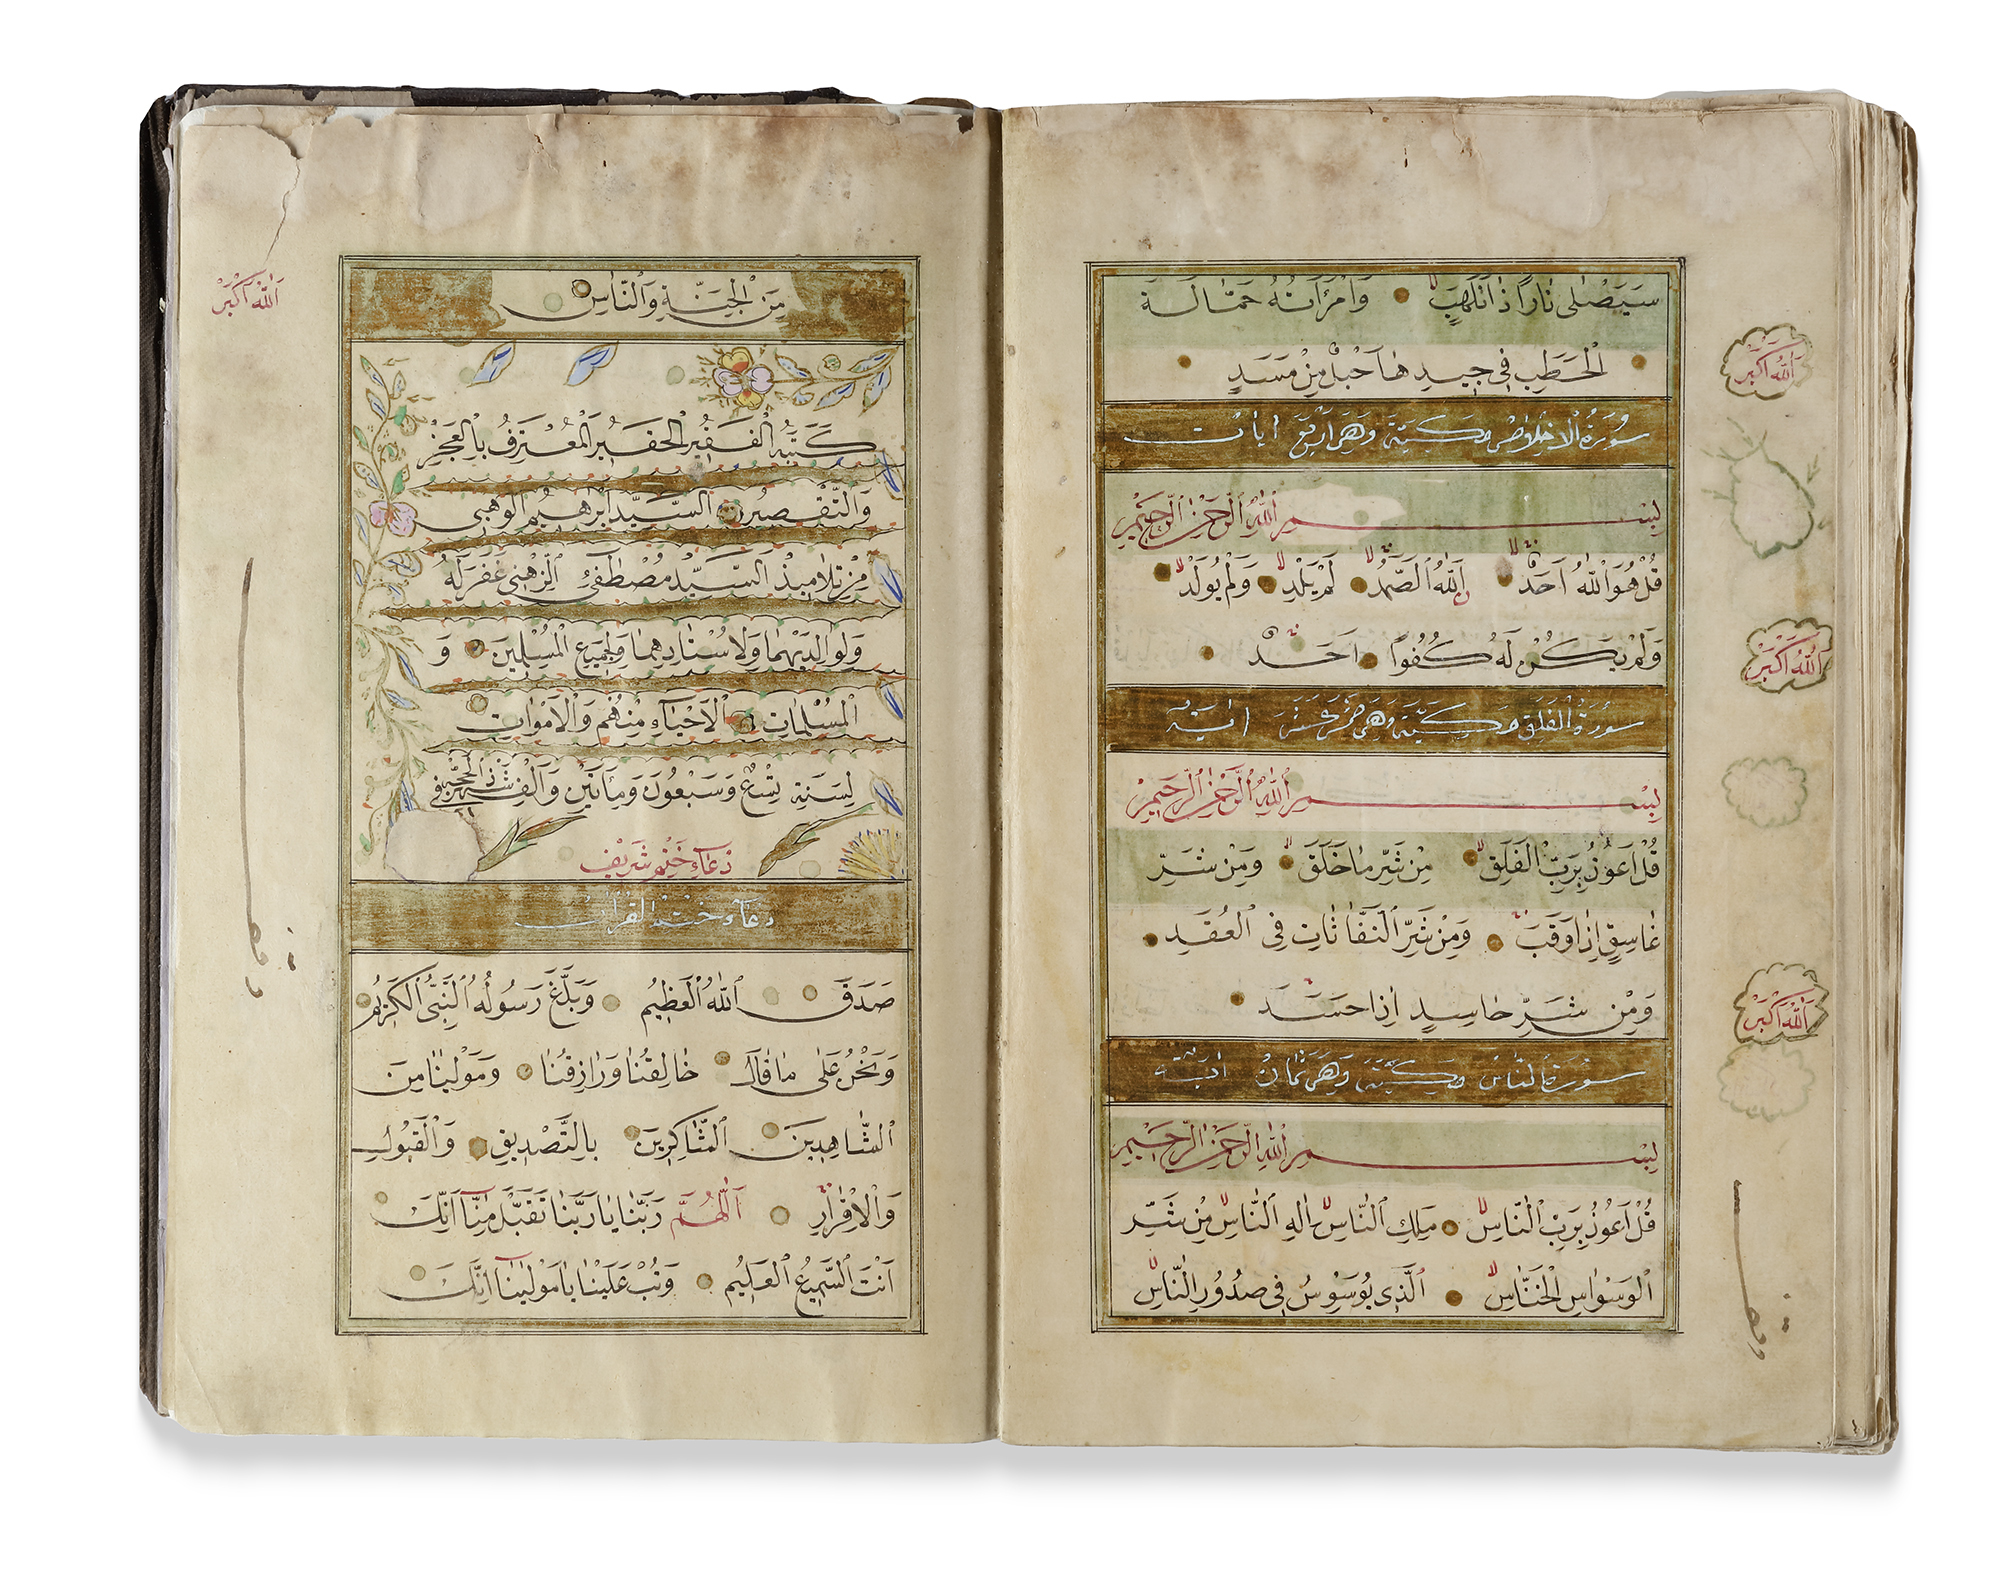 سَيَصْلٰى نَارًا ذَاتَ لَهَبٍ وَامْرَاَتُهُ حَمَّالَةَ
الْحَطَبِ فِي جِيدِهَا حَبْلٌ مِنْ مَسَدٍ
سورة الاخلاص مكية وهي اربع ايات
بِسْمِ اللّٰهِ الرَّحْمٰنِ الرَّحِيمِ
قُلْ هُوَ اللّٰهُ اَحَدٌ اَللّٰهُ الصَّمَدُ لَمْ يَلِدْ وَلَمْ يُولَدْ
وَلَمْ يَكُنْ لَهُ كُفُوًا اَحَدٌ
سورة الفلق مكية وهي خمس اية
بِسْمِ اللّٰهِ الرَّحْمٰنِ الرَّحِيمِ
قُلْ اَعُوذُ بِرَبِّ الْفَلَقِ مِنْ شَرِّ مَا خَلَقَ وَمِنْ شَرِّ
غَاسِقٍ اِذَا وَقَبَ وَمِنْ شَرِّ النَّفَّاثَاتِ فِي الْعُقَدِ
وَمِنْ شَرِّ حَاسِدٍ اِذَا حَسَدَ
سورة الناس مكية وهي ثمان اية
بِسْمِ اللّٰهِ الرَّحْمٰنِ الرَّحِيمِ
قُلْ اَعُوذُ بِرَبِّ النَّاسِ مَلِكِ النَّاسِ اِلٰهِ النَّاسِ مِنْ شَرِّ
الْوَسْوَاسِ الْخَنَّاسِ اَلَّذِي يُوَسْوِسُ فِي صُدُورِ النَّاسِ
اَللّٰهُ اَكْبَرْ
اَللّٰهُ اَكْبَرْ
اَللّٰهُ اَكْبَرْ
وقف
مِنَ الْجِنَّةِ وَالنَّاسِ
كَتَبَهُ الْفَقِيرُ الْحَقِيرُ الْمُعْتَرِفُ بِالْعَجْزِ
وَالتَّقْصِيرِ السَّيِّدْ اِبْرَاهِيمُ الْوَهْبِي
مِنْ تَلَامِيذِ السَّيِّدْ مُصْطَفٰى الزهني غَفَرَ لَهُ
وَلِوَالِدَيْهِمَا وَلِاُسْتَادِهِمَا وَلِجَمِيعِ الْمُسْلِمِينَ وَ
الْمُسْلِمَاتِ الْاَحْيَاءِ مِنْهُمْ وَالْاَمْوَاتِ
لِسَنَةِ تِسْعٌ وَسَبْعُونَ وَمِاَتَيْنِ وَاَلْفِ
دُعَاءِ خَتِمِ شَرِيفْ
دعاء ختم القران
صَدَقَ اللّٰهُ الْعَظِيمُ وَبَلَّغَ رَسُولُهُ النَّبِيُّ الْكَرِيمُ
وَنَحْنُ عَلٰى مَا قَالَ خَالِقُنَا وَرَازِقُنَا وَمَوْلٰينَا مِنَ
الشَّاهِدِينَ الشَّاكِرِينَ بِالتَّصْدِيقِ وَالْقَبُولِ
وَالْاِقْرَارِ اَللّٰهُمَّ رَبَّنَا يَا رَبَّنَا تَقَبَّلْ مِنَّا اِنَّكَ
اَنْتَ السَّمِيعُ الْعَلِيمُ وَتُبْ عَلَيْنَا يَا مَوْلٰينَا اِنَّكَ
اَللّٰهُ اَكْبَرْ
وقف